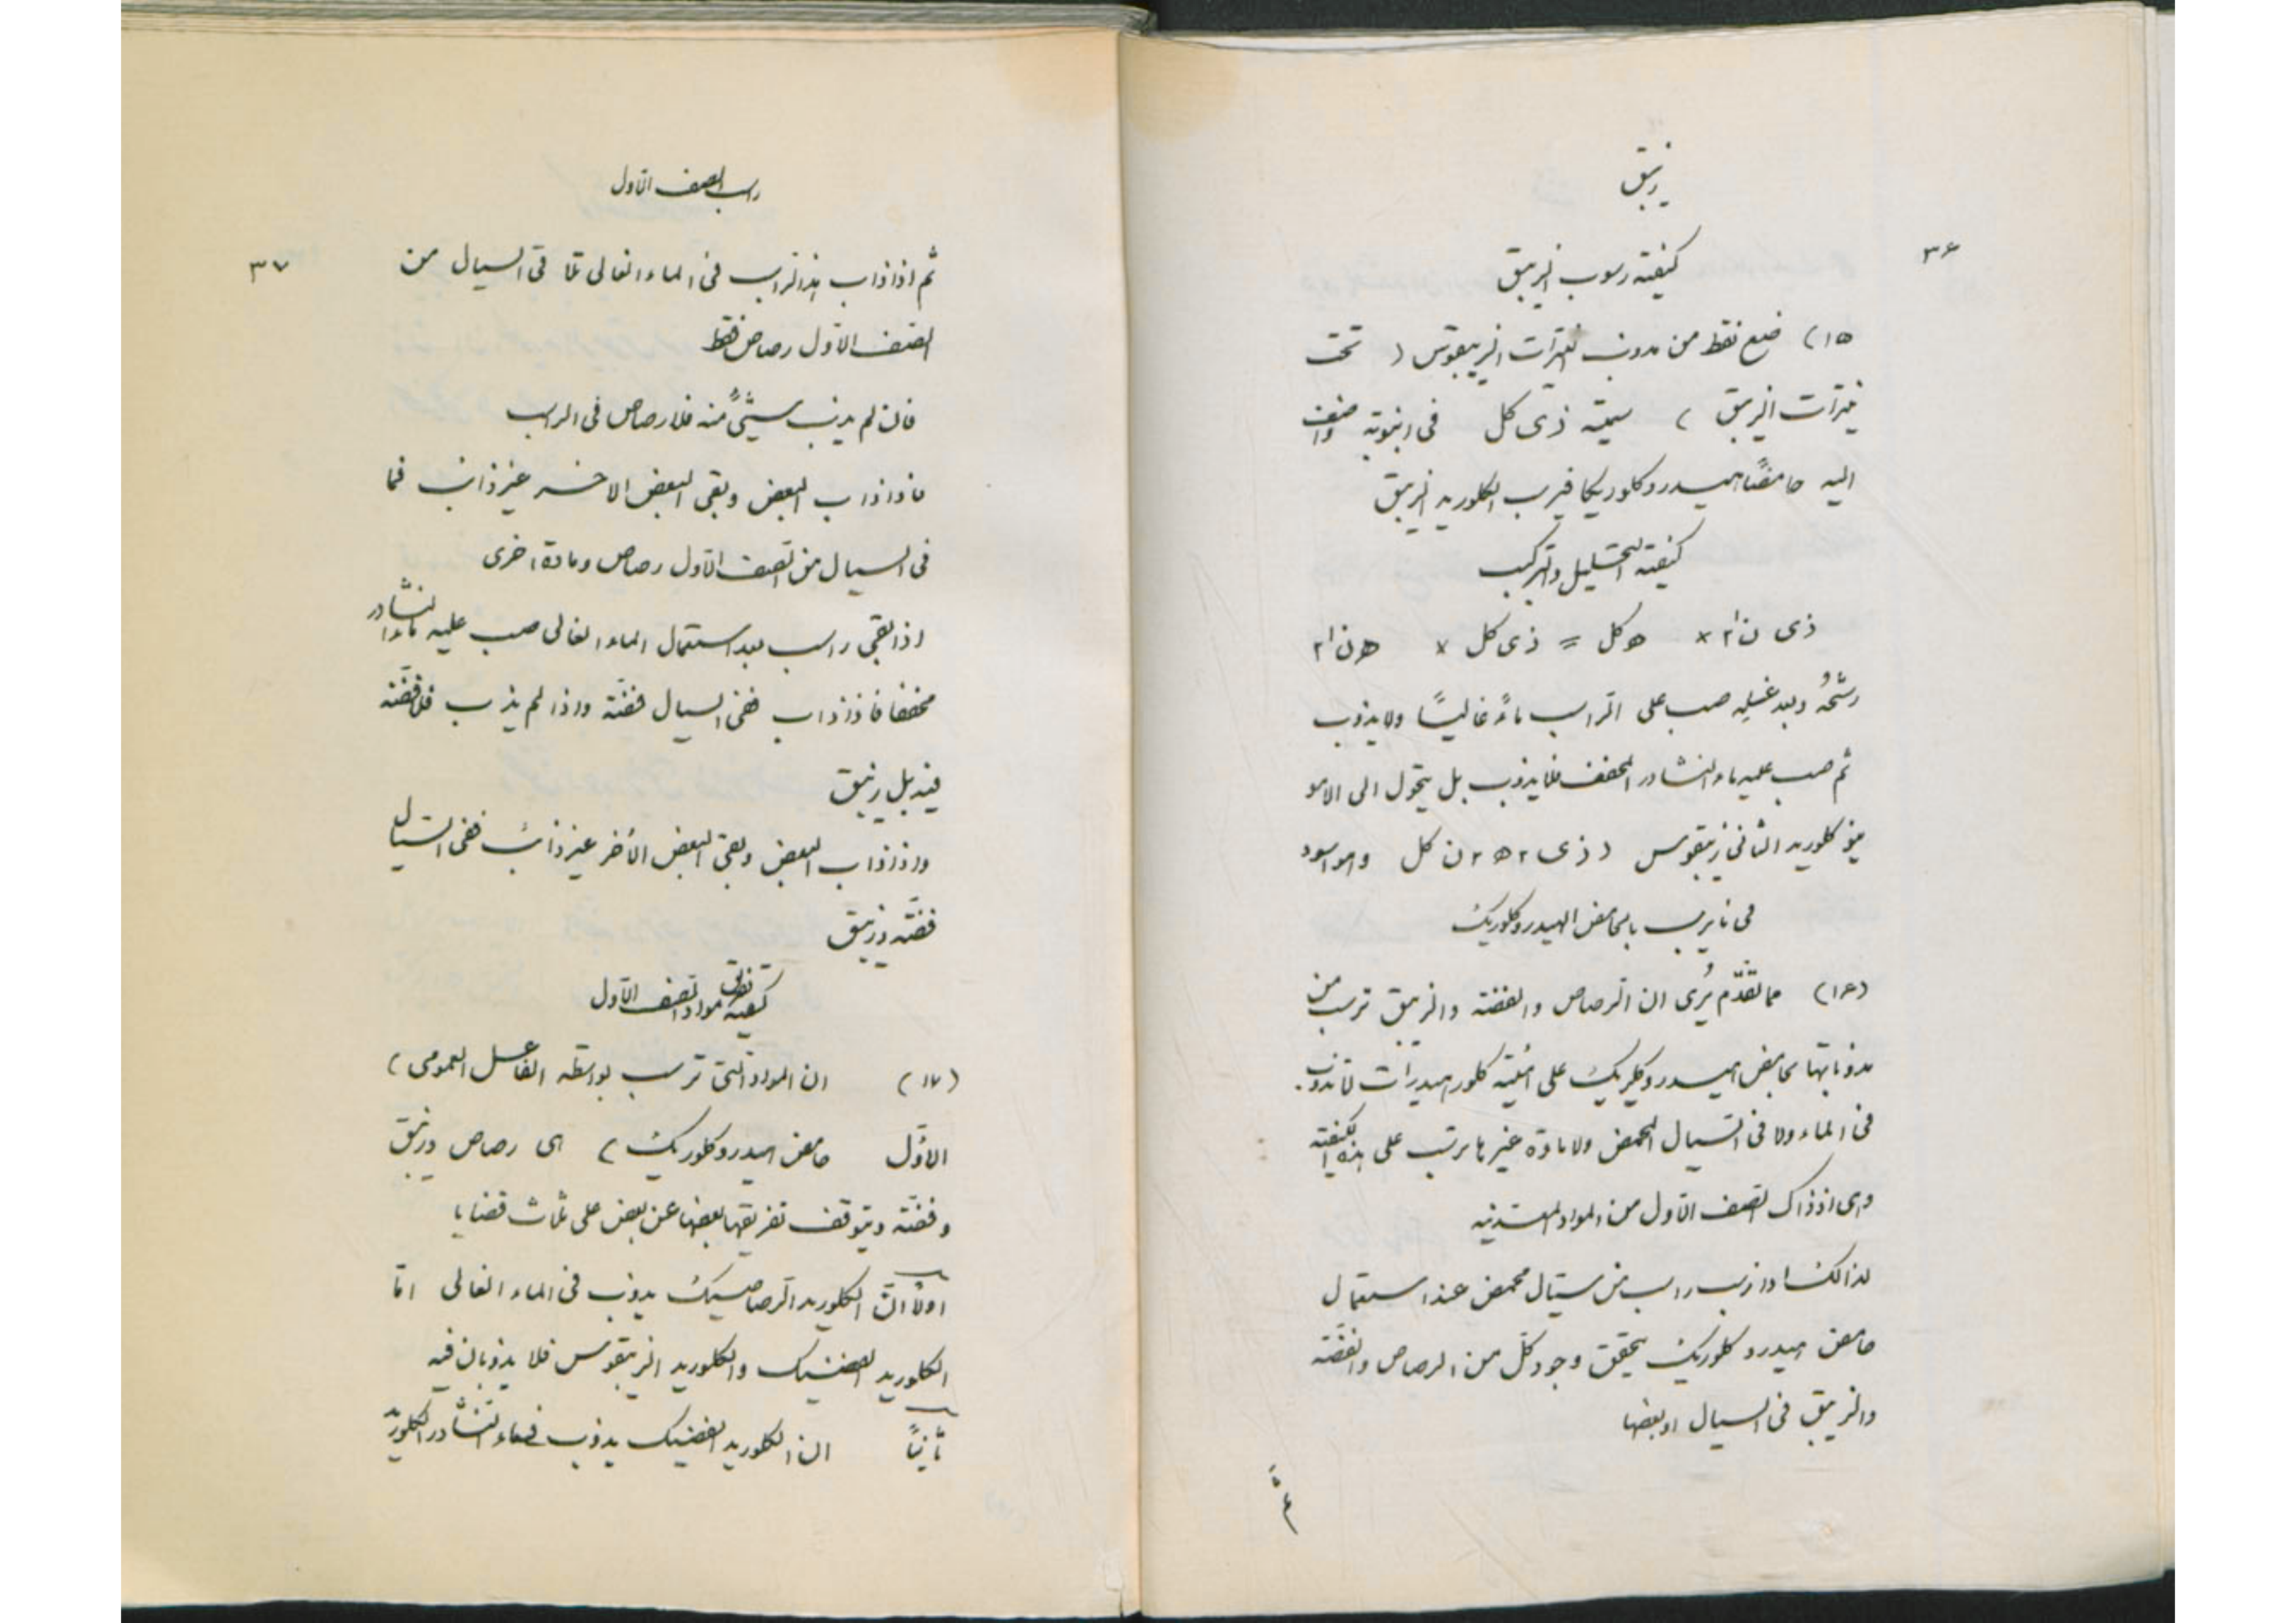 زيبق
٣۶
كيفية رسوب الزيبق
(١٥) ضع نقط من مذوب نيترات الزيبقوس ( تحت
نيترات الزيبق ) سمته ذى كل فى انبوبة واضف
اليه حامضًا هيدروكلوريكا فيرسب الكلوريد الزيبق
كيفية التحليل والتركيب
ذى ن ا٣ × ه كل = ذى كل × ه ن ا٣
رشّحهُ وبعد غسلِه صب على الراسب ماءً غاليًا ولا يذوب
ثم صب عليه ماء النشادر المخفف فلا يذوب بل يتحول الى الامو
نيو كلوريد الثانى زيبقوس ( ذى ٢ ه ٢ ن كل وهو اسود
فى ما يرسب بالحامض الهيدروكلوريك
(١۶) مما تقدّم يُرى ان الرصاص والفضة والزيبق ترسب من
مذوباتها بحامض هيدروكلريك على هيئة كلورهيدرات لا تذوب
فى الماء ولا فى السيال المحمض ولا مادة غيرها ترسب على هذه الكيفية
وهى اذ ذاك الصف الاول من المواد المعدنيه
لذالك اذا رسب راسب من سيال محمض عند استعمال
حامض هيدروكلوريك يحقق وجود كل من الرصاص والفضة
والزيبق فى السيال او بعضها
ثم
راسب الصف الاول
٣٧
ثم اذا ذاب هذا الراسب فى الماء الغالى تلا فى السيال من
الصف الاول رصاص فقط
فان لم يذب شيئًا منه فلا رصاص فى الراسب
فاذا ذاب البعض وبقى البعض الاخر غير ذائب فما
فى السيال من الصف الاول رصاص ومادة اخرى
اذا بقى راسب بعد استعمال الماء الغالى صب عليه ماء النشادر
مخففا فاذا ذاب ففى السيال فضة واذا لم يذب فلا فضة
فيه بل زيبق
واذا ذاب البعض وبقى البعض الأخر غير ذائب ففى السيال
فضة وزيبق
كيفية تفريق مواد الصف الاول
(١٧) ان المواد التى ترسب بواسطة الفاعل العمومى )
الاوّل حامض هيدروكلوريك ) اى رصاص وزيبق
وفضة ويتوقف تفريقها بعضها عن بعض على ثلاث قضايا
اولاً انّ الكلوريد الرصاصيك يذوب فى الماء الغالى امّا
الكلوريد الفضيك والكلوريد الزيبقوس فلا يذوبان فيه
ثانيًا ان الكلوريد الفضيك يذوب فى ماء النشادر الكلوريد